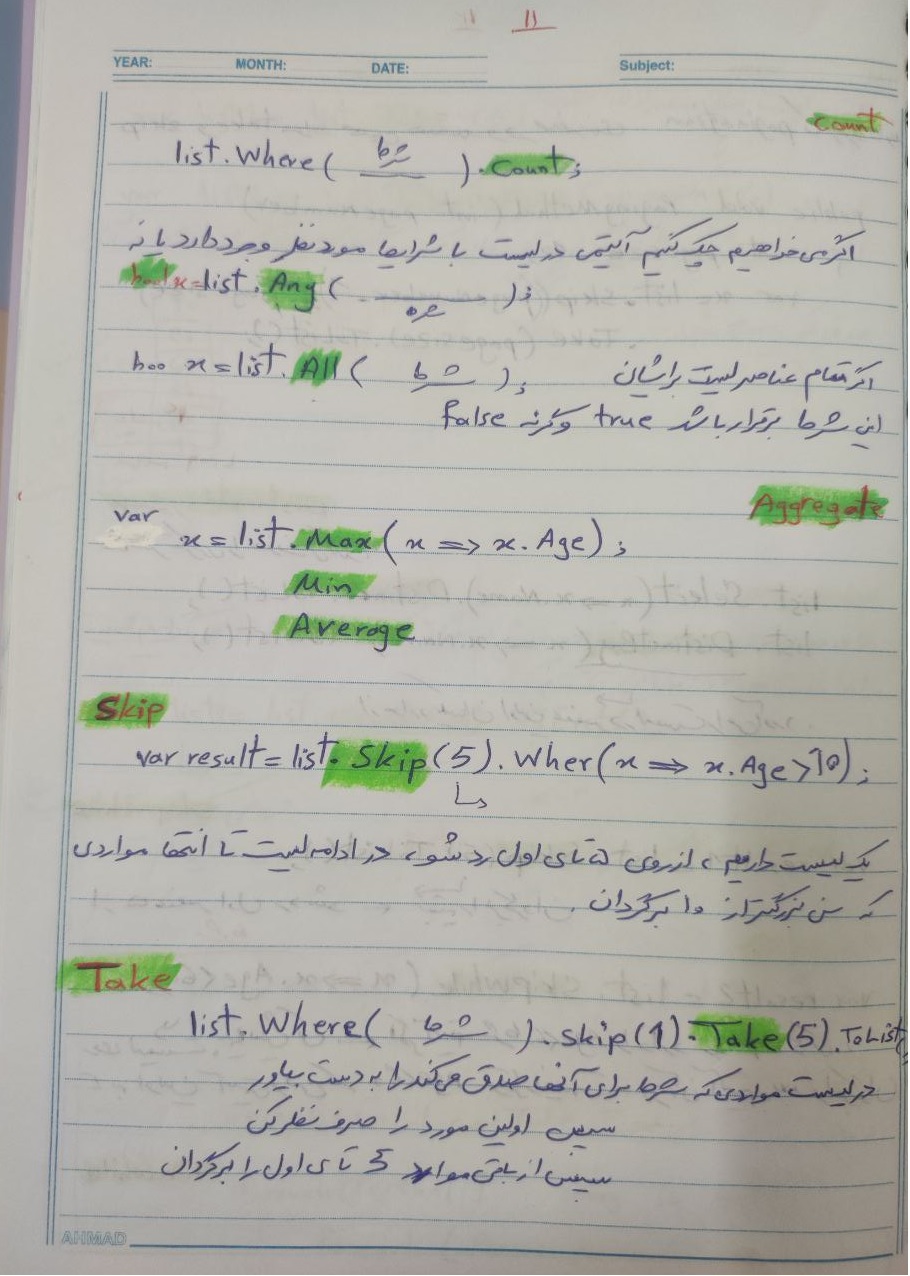 11
YEAR: MONTH: DATE: Subject:
Count
list.Where( شرط ).Count;
اگر می خواهیم چک کنیم آیتمی در لیست با شرایط مورد نظر وجود دارد یا نه
bool x=list.Any( شرط );
boo x=list.All( شرط ); اگر تمام عناصر لیست براشان
این شرط برقرار باشد true وگرنه false
Aggregate
var x=list.Max(x => x.Age);
Min
Average
Skip
var result=list.Skip(5).Wher(x => x.Age>10);
یک لیست داریم، از روی ۵ تای اول رد شو، در ادامه لیست تا انتها مواردی
که سن بزرگتر از ۱۰ برگردان.
Take
list.Where( شرط ).skip(1).Take(5).ToList(
در لیست مواردی که شرط برای آنها صدق می کند را به دست بیاور
سپس اولین مورد را صرف نظر کن
سپس از باقی موارد 5 تای اول را برگردان
AHMAD